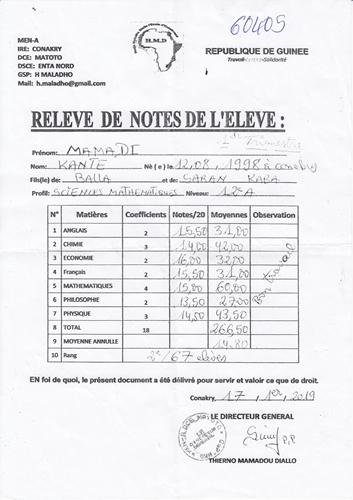 60405
MEN-A
IRE: CONAKRY
DCE: MATOTO
DSCE: ENTA NORD
GSP: H MALADHO
Mail: h.maladho@gmail.com
H.M.D
REPUBLIQUE DE GUINEE
Travail-Justice-Solidarité
RELEVE DE NOTES DE L'ELEVE :
1er Trimestre
Prénom: MAMADI
Nom: KANTE Né ( e ) le 12,08,1998 à Conakry
Fils(le) de: BALLA et de: SARAN KABA
Profil: SCIENCES MATHEMATIQUES Niveau: 12e A
N° Matières Coefficients Notes/20 Moyennes Observation
1 ANGLAIS 2 15,50 31,00
2 CHIMIE 3 14,00 42,00
3 ECONOMIE 2 16,00 32,00
4 Français 2 15,50 31,00
5 MATHEMATIQUES 4 15,00 60,00
6 PHILOSOPHIE 2 13,50 27,00
7 PHYSIQUE 3 14,50 43,50
8 TOTAL 18 266,50
9 MOYENNE ANNULLE 14,80
10 Rang 2e/67 élèves
Bon travail
EN foi de quoi, le présent document a été délivré pour servir et valoir ce que de droit.
Conakry, 17, 1er, 2019
LE DIRECTEUR GENERAL
P.P
THIERNO MAMADOU DIALLO